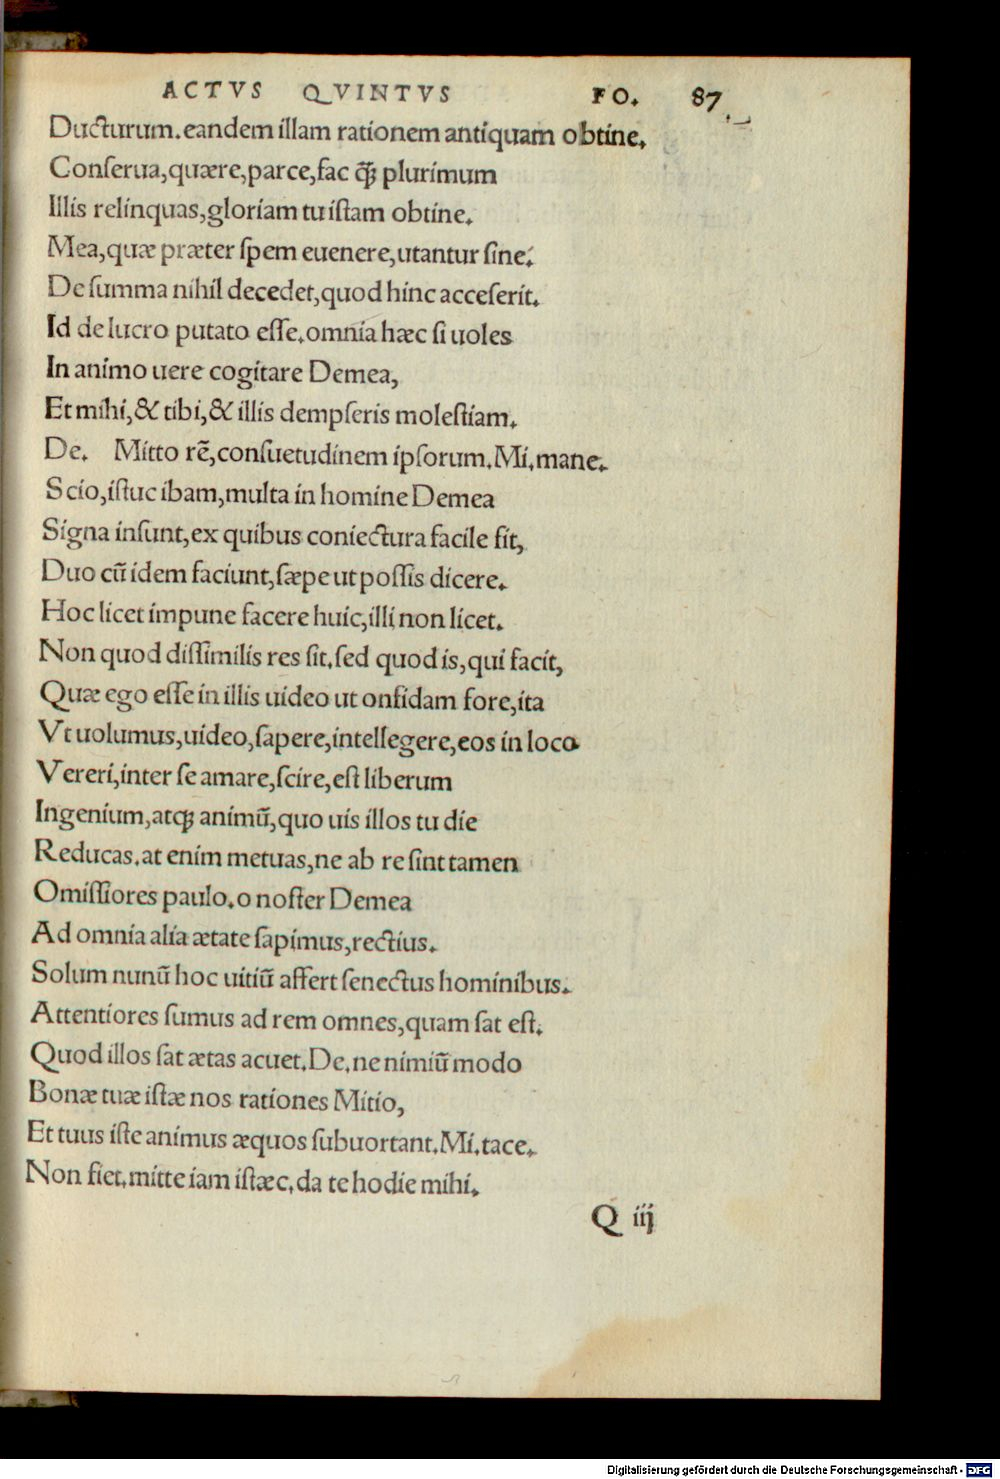 ACTVS QVINTVS FO. 87
Ducturum.eandem illam rationem antiquam obtine.
Conſerua,quære,parce,fac ꝙ̃ plurimum
Illis relinquas,gloriam tu iſtam obtine.
Mea,quæ præter ſpem euenere,utantur ſine.
De ſumma nihil decedet,quod hinc acceſerit.
Id de lucro putato eſſe.omnia hæc ſi uoles
In animo uere cogitare Demea,
Et mihi,& tibi,& illis dempſeris moleſtiam.
De. Mitto rẽ,conſuetudinem ipſorum.Mi.mane.
Scio,iſtuc ibam,multa in homine Demea
Signa inſunt,ex quibus coniectura facile fit,
Duo cũ idem faciunt,ſæpe ut poſſis dicere.
Hoc licet impune facere huic,illi non licet.
Non quod diſſimilis res ſit.ſed quod is,qui facit,
Quæ ego eſſe in illis uideo ut onfidam fore,ita
Vt uolumus,uideo,ſapere,intelſegere,eos in loco
Vereri,inter ſe amare,ſcire,eſt liberum
Ingenium,atqȝ animũ,quo uis illos tu die
Reducas.at enim metuas,ne ab re ſint tamen
Omiſſiores paulo.o noſter Demea
Ad omnia alia ætate ſapimus,rectius.
Solum nunũ hoc uitiũ affert ſenectus hominibus.
Attentiores ſumus ad rem omnes,quam ſat eſt.
Quod illos ſat ætas acuet.De.ne nimiũ modo
Bonæ tuæ iſtæ nos rationes Mitio,
Et tuus iſte animus æquos ſubuortant.Mi.tace.
Non fiet.mitte iam iſtæc.da te hodie mihi.
Q iij
Digitalisierung gefördert durch die Deutsche Forschungsgemeinschaft - DFG